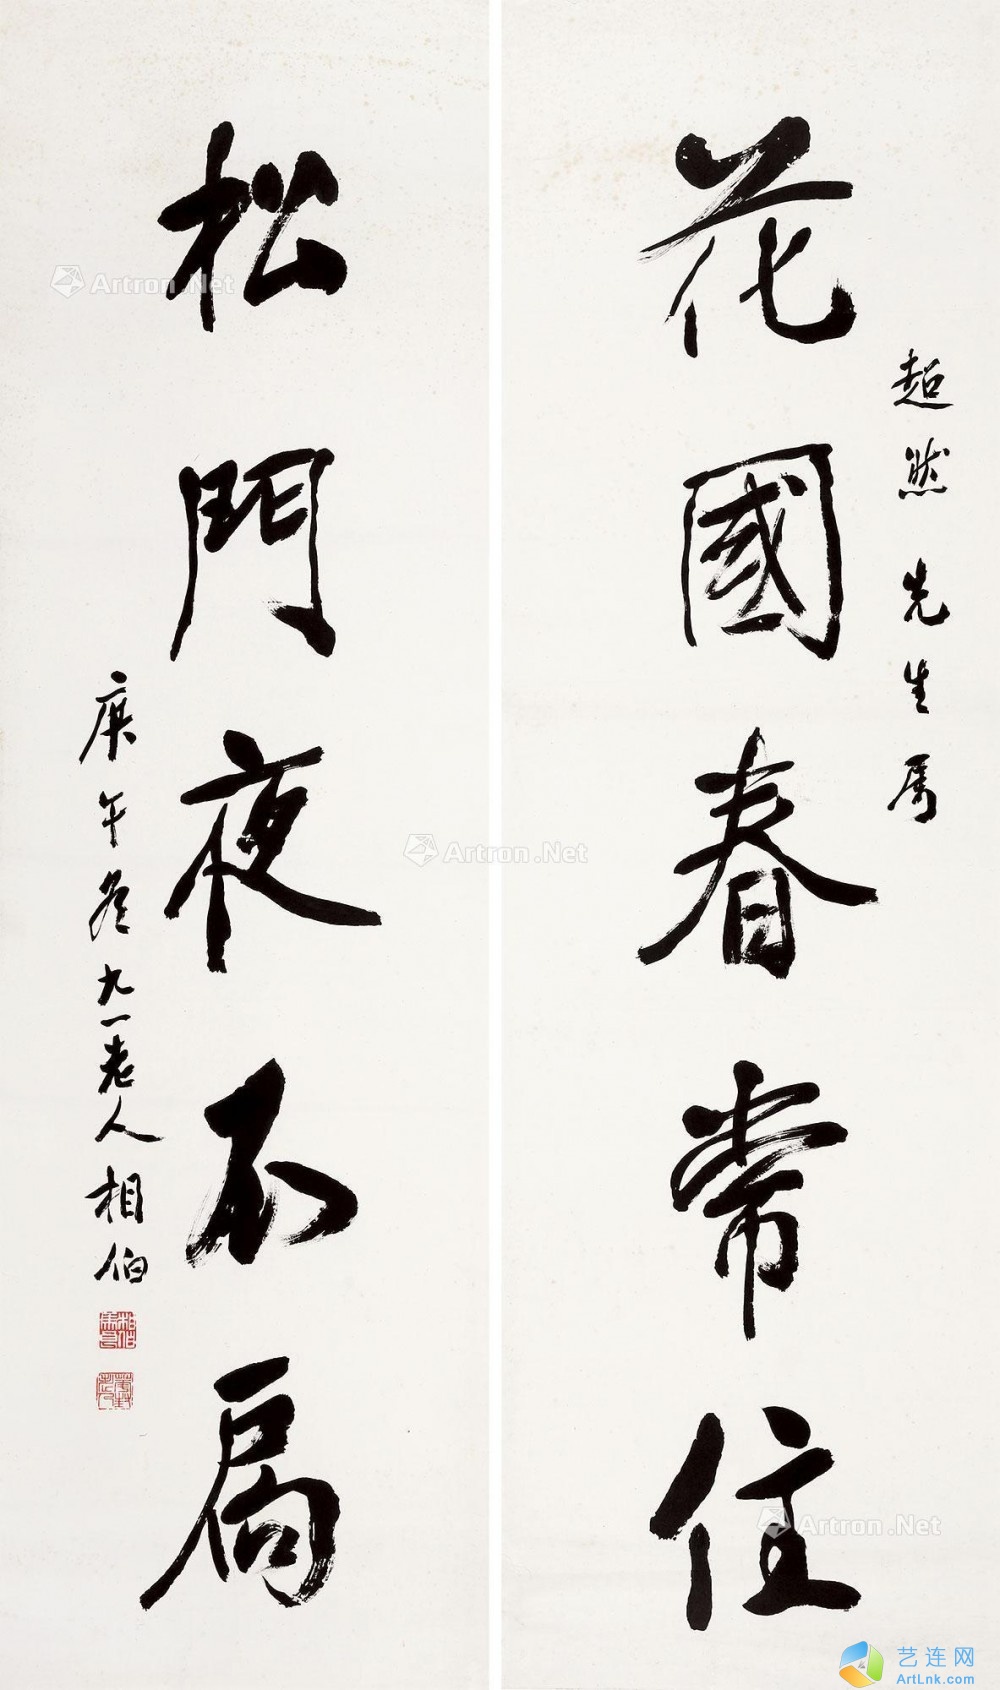 超然先生属
花國春常住
松門夜不扃
庚午冬九一老人相伯
Artron.Net
Artron.Net
Artron.Net
艺连网
ArtLnk.com